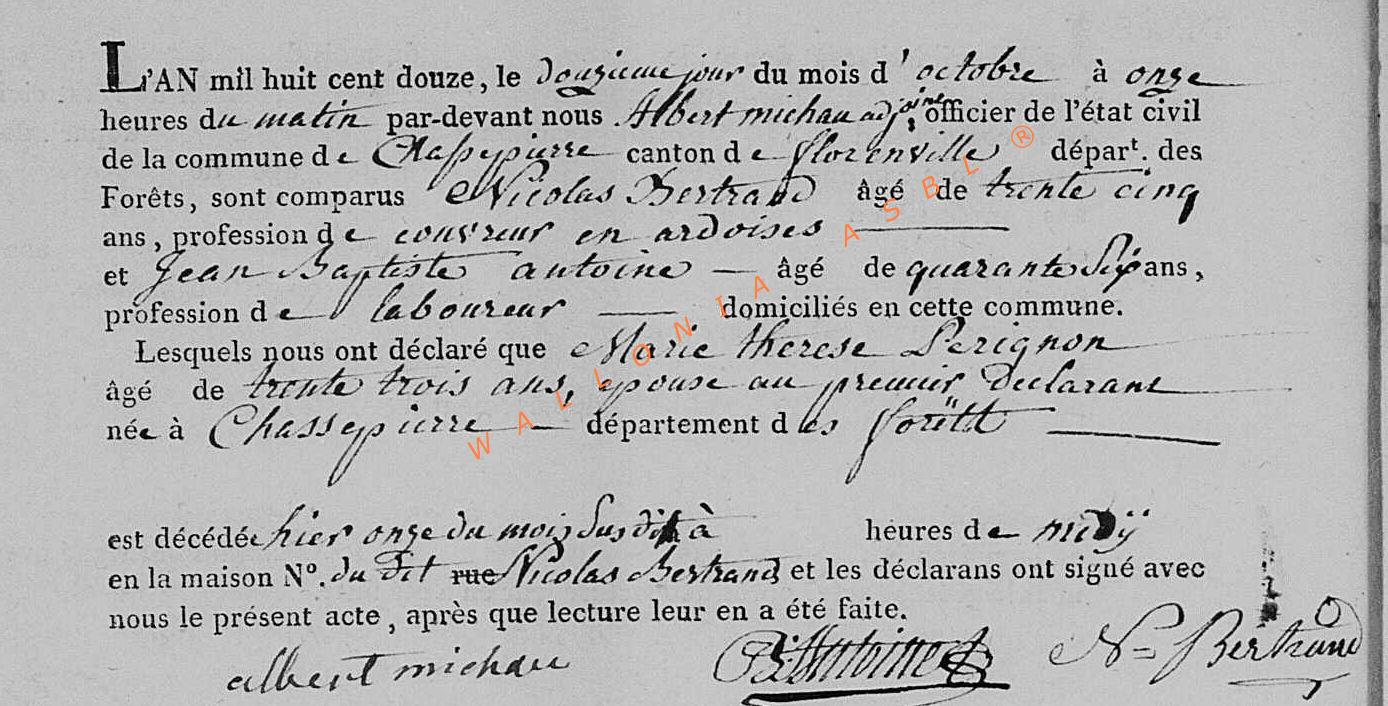 L'AN mil huit cent douze, le douzieme jour du mois d'octobre à onze
heures du matin par-devant nous Albert michau adjoint officier de l'état civil
de la commune de Chassepierre canton de florenville dépar^t. des
Forêts, sont comparus Nicolas Bertrand âgé de trente cinq
ans, profession de couvreur en ardoises
et Jean Baptiste antoine — âgé de quarante six ans,
profession de laboureur — domiciliés en cette commune.
Lesquels nous ont déclaré que Marie therese Perignon
âgé de trente trois ans, epouse au premier declarant
née à Chassepierre — département des forêtt
est décédée hier onze du mois susdit à heures de midÿ
en la maison N°. du dit rue Nicolas Bertrand et les déclarans ont signé avec
nous le présent acte, après que lecture leur en a été faite.
albert michau JB: Antoine N= Bertrand
WALLONIA ASBL ®